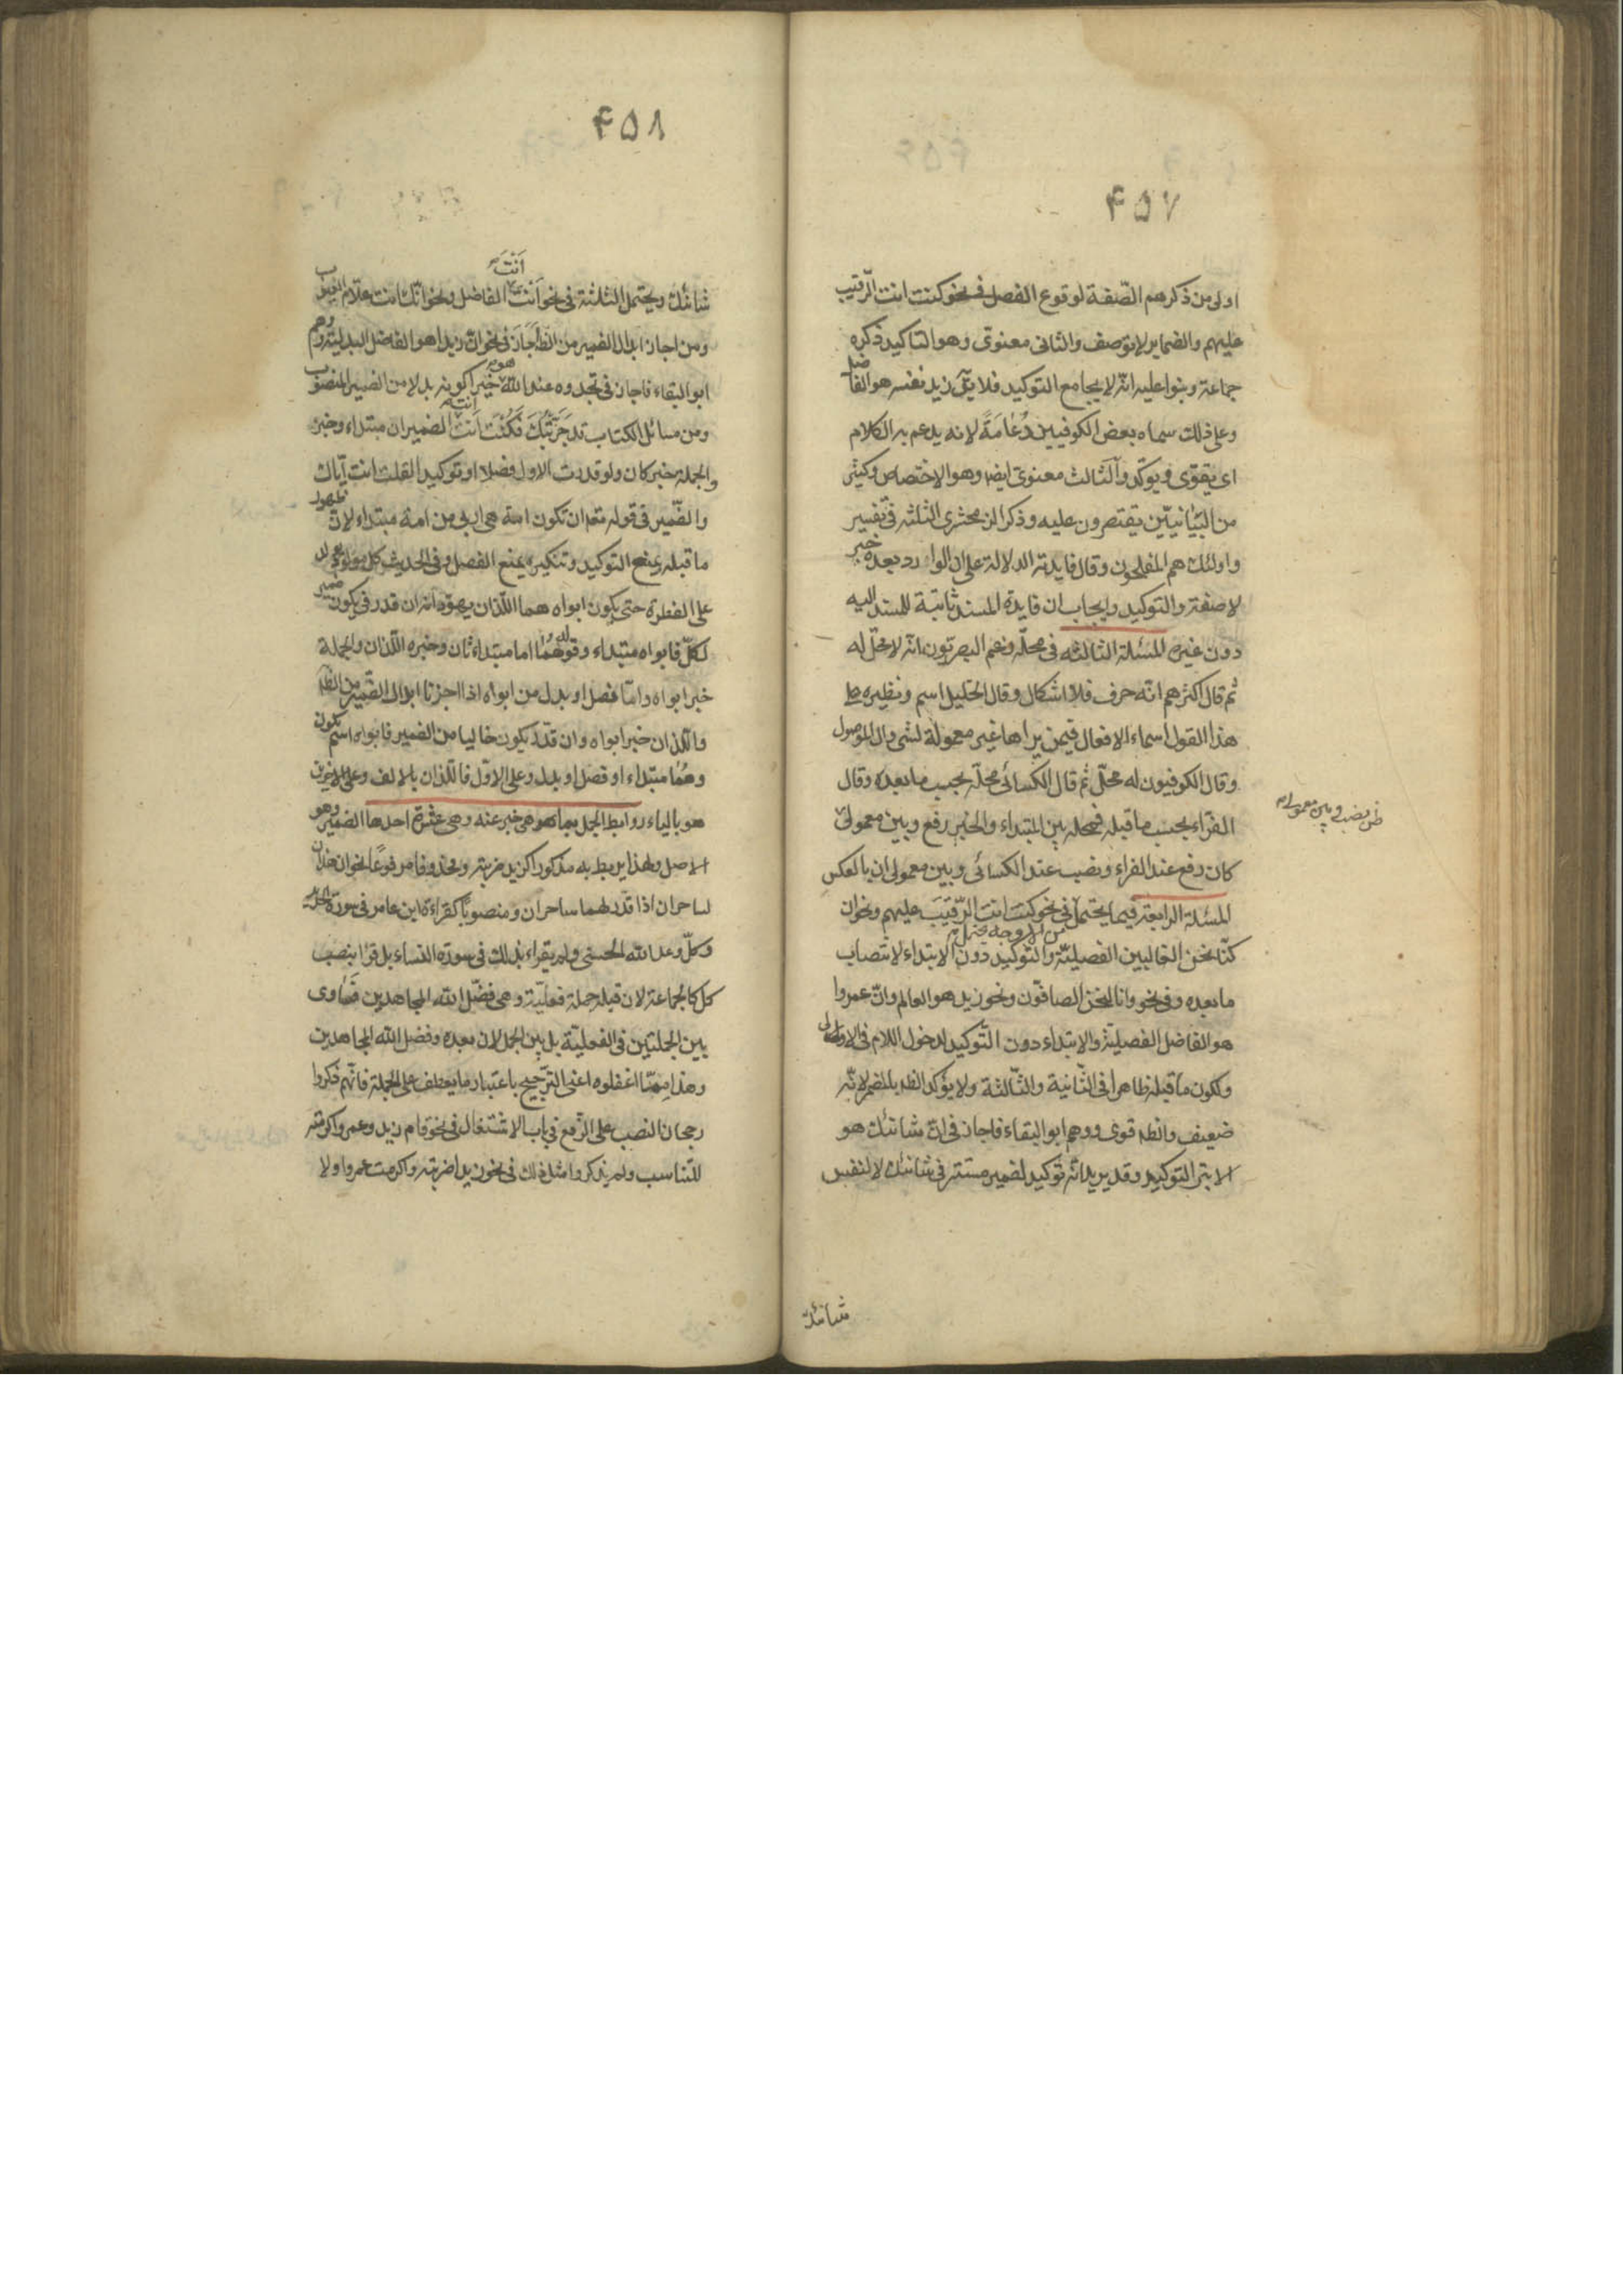 ۴۵۷
اولى من ذكرهم الصّفة لوقوع الفصل فى نحو كنت انت الرّقيب
عليهم والضماير لا توصف والثانى معنوى وهو التاكيد ذكره
جماعة وبنوا عليه انّه لا يجامع التوكيد فلا يق زيد نفسه هو الفاضل
وعلى ذلك سماه بعض الكوفيين دُعامَةً لانه يدعم به الكلام
اى يقوّى ويوكّد والثالث معنوى ايضا وهو الاختصاص وكثير
من البيانيّين يقتصرون عليه وذكر الزمخشرى الثلثة فى تفسير
واولئك هم المفلحون وقال فايدته الدلالة على ان الوارد بعده خبر
لا صفة والتوكيد وايجاب ان فايدة المسند ثابتة للمسند اليه
دون غيره المسئلة الثالثه فى محلّه زعم البصريّون انّه لا محلّ له
ثم قال اكثرهم انّه حرف فلا اشكال وقال الخليل اسم ونظيره على
هذا القول اسماء الافعال فيمن يراها غير معمولة لشى وال الموصول
وقال الكوفيون له محلّ ثم قال الكسائى محلّه بحسب ما بعده وقال
الفرّاء بحسب ما قبله فمحله بين المبتداء والخبر رفع وبين معمولى
كان رفع عند الفراء ونصب عند الكسائى وبين معمولى ان بالعكس
المسئلة الرابعة فيما يحتمل من الاوجه يحتمل فى نحو كنت انت الرّقيبَ عليهم ونحو ان
كنّا نحن الغالبين الفصليّة والتوكيد دون الابتداء لانتصاب
ما بعده وفى نحو وانا لنحن الصافّون ونحو زيد هو العالم وانّ عمروا
هو الفاضل الفصليّة والابتداء دون التوكيد لدخول اللام فى الاولى
ولكون ما قبله ظاهرا فى الثّانية والثّالثة ولا يؤكد الظ بالمضمر لانّه
ضعيف والظ قوى ووهم ابو البقاء فاجاز فى انّ شانئك هو
الابتر التوكيد وقد يريد انّه توكيد لضمير مستتر فى شانئك لا لنفس
شانئك
۴۵۸
شانئك ويحتمل الثلثة فى نحو اَنْتَ اَنْتَ الفاضل ونحو انّك انت علّام الغيوب
ومن اجاز ابدال الضمير من الظ اجاز فى نحو انّ زيدا هو الفاضل البدلية ووهم
ابو البقاء فاجاز فى تجدوه عند الله هو خيرا كونه بدلا من الضمير المنصوب
ومن مسائل الكتاب قد جَرَّبْتُكَ فَكُنْتَ اَنتَ انت الضميران مبتداء وخبر
والجملة خبر كان ولو قدرت الاول فصلا او توكيدا لقلت انت ايّاك
والضّمير فى قوله تعم ان تكون امة هى اربى من امة مبتداء لان ظهور
ما قبله يمنع التوكيد وتنكيره يمنع الفصل وفى الحديث كل مولود يولد
على الفطرة حتى يكون ابواه هما اللّذان يهوّدانه ان قدر فى يكون ضمير
لكلّ فابواه مبتداء وقوله هُما اما مبتداء ثان وخبره اللّذان والجملة
خبر ابواه وامّا فصل او بدل من ابواه اذا اجزنا ابدال الضّمير من الظ
واللّذان خبر ابواه وان قدّر يكون خاليا من الضمير فابواه اسم يكون
وهُما مبتداء او فصل او بدل وعلى الاوّل فاللّذان بالالف وعلى الاخيرين
هو بالياء روابط الجمل بما هى خبر عنه وهى عشرة احدها الضمير وهو
الاصل ولهذا يربط به مذكورا كزيد ضربته ومحذوفا مرفوعًا نحو ان هذان
لساحران اذا قدّر لهما ساحران ومنصوبًا كقراءة ابن عامر فى سورة الحديد
وكلّ وعد الله الحسنى ولم يقراء بذلك فى سورة النساء بل قرا بنصب
كل كالجماعة لان قبله جملة فعليّة وهى فضّل الله المجاهدين فَساوى
بين الجملتين فى الفعليّة بل بين الجمل لان بعده وفضل الله المجاهدين
وهذا مِمّا اغفلوه اعنى التّرجيح باعتبار ما يعطف على الجملة فانّهم ذكروا
رجحان النصب على الرّفع فى باب الاشتغال فى نحو قام زيد وعمروا اكرمته
للتناسب ولم يذكروا مثل ذلك فى نحو زيد اضربته واكرمت عمروا ولا